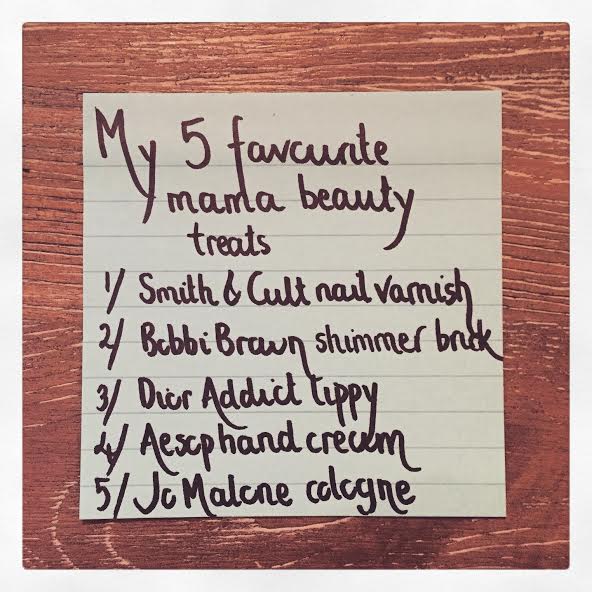 My 5 favourite
mama beauty
treats
1/ Smith & Cult nail varnish
2/ Bobbi Brown shimmer brick
3/ Dior Addict lippy
4/ Aesop hand cream
5/ Jo Malone cologne